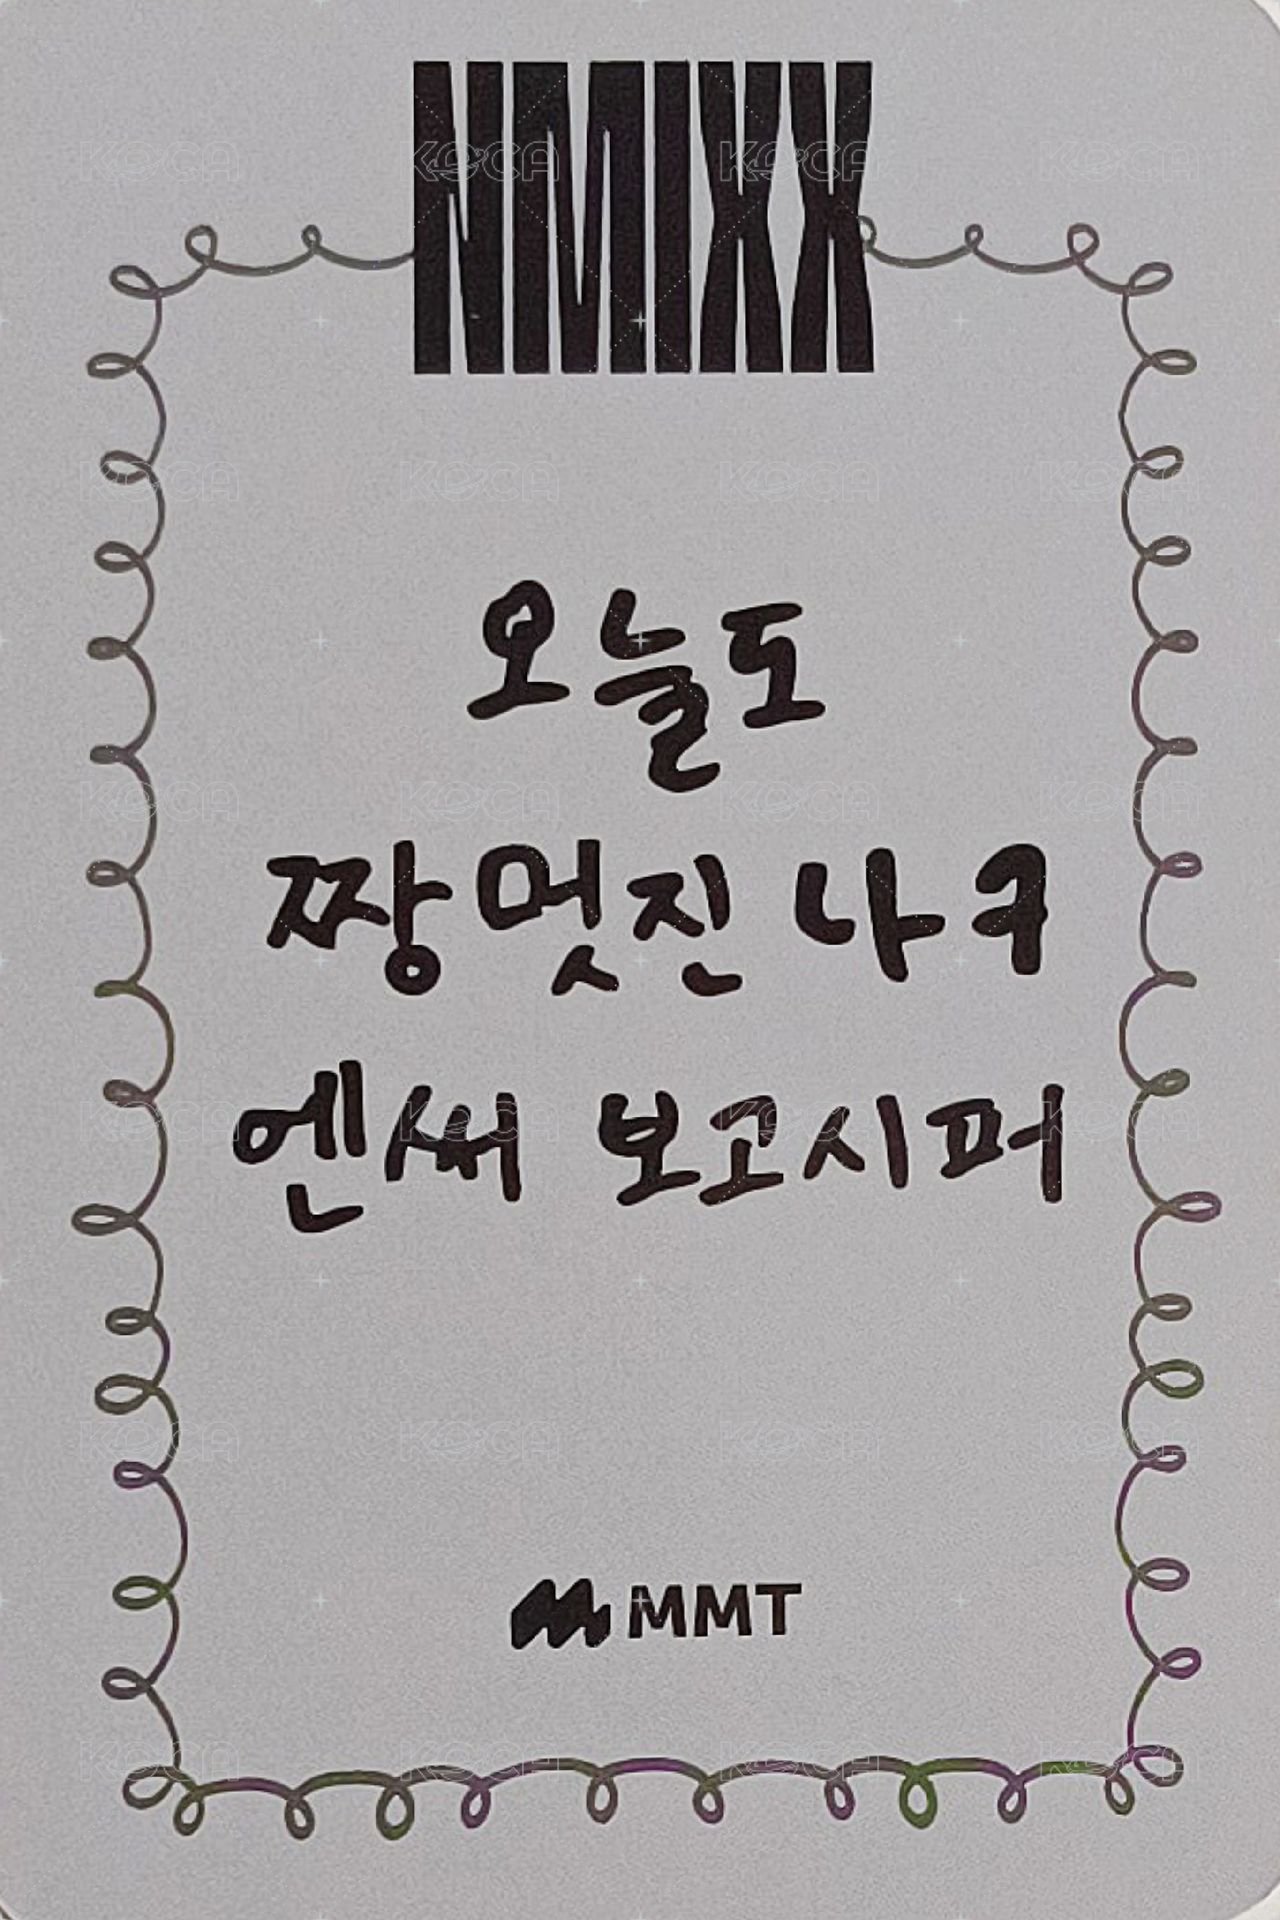 NMIXX
오늘도
짱멋진 나구
엔써 보고시퍼
MMT
KOCA